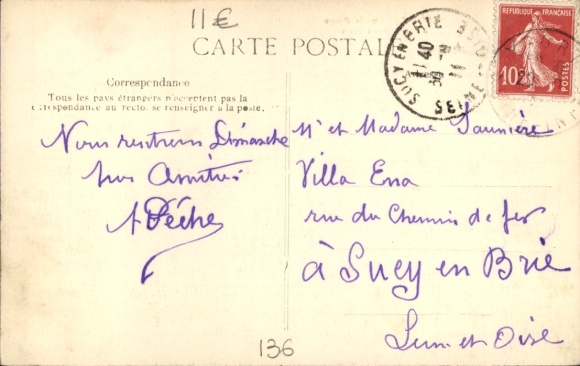 11€
CARTE POSTALE
SUCY EN BRIE
11 40
SEINE
RÉPUBLIQUE FRANÇAISE
10c
POSTES
Correspondance
Tous les pays étrangers n'acceptent pas la
correspondance au recto. se renseigner à la poste.
Nous rentrons Dimanche
nos Amitiés
A Pêche
Mr et Madame Saunière
Villa Ena
rue du Chemin de fer
à Sucy en Brie
Seine et Oise
136